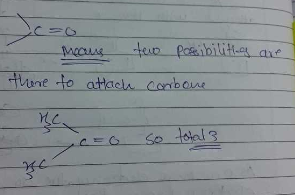 >C=O
Means two possibilities are
there to attach carbone
H3C
C=O so total 3
H3C